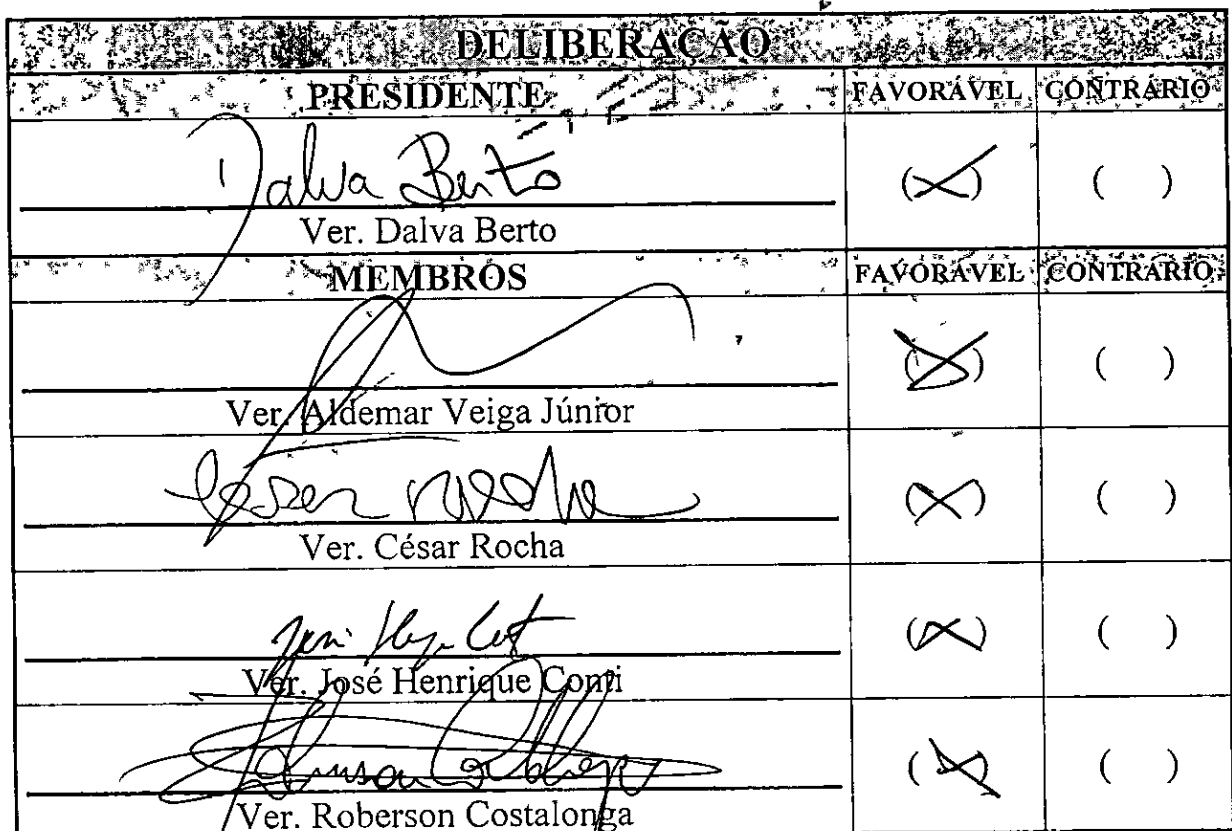 DELIBERAÇÃO
PRESIDENTE FAVORÁVEL CONTRÁRIO
Dalva Berto (X) ( )
Ver. Dalva Berto
MEMBROS FAVORÁVEL CONTRÁRIO
(X) ( )
Ver. Aldemar Veiga Júnior
Cesar Rocha (X) ( )
Ver. César Rocha
(X) ( )
Ver. José Henrique Conti
(X) ( )
Ver. Roberson Costalonga